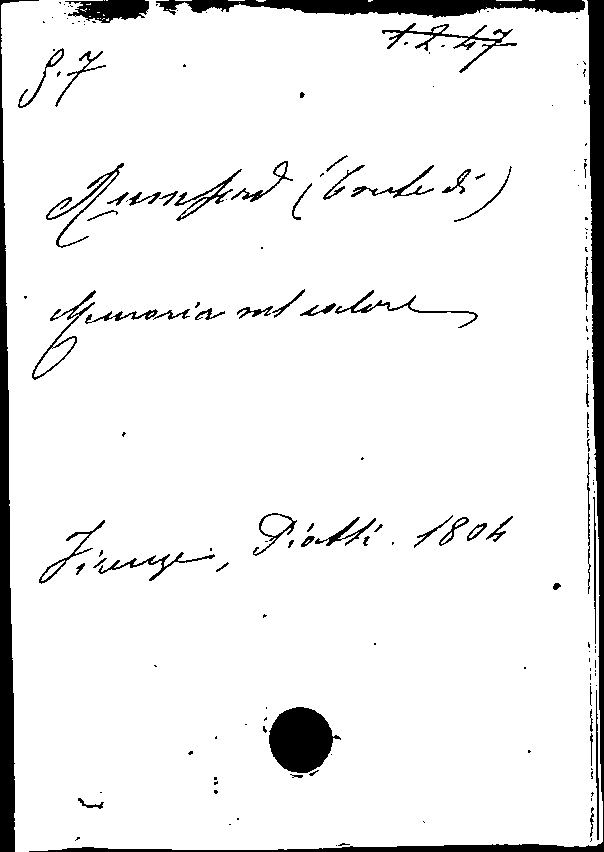 g.7
1.2.47
Rumford (Conte di)
Memoria sul calore
Firenze, Piatti. 1804